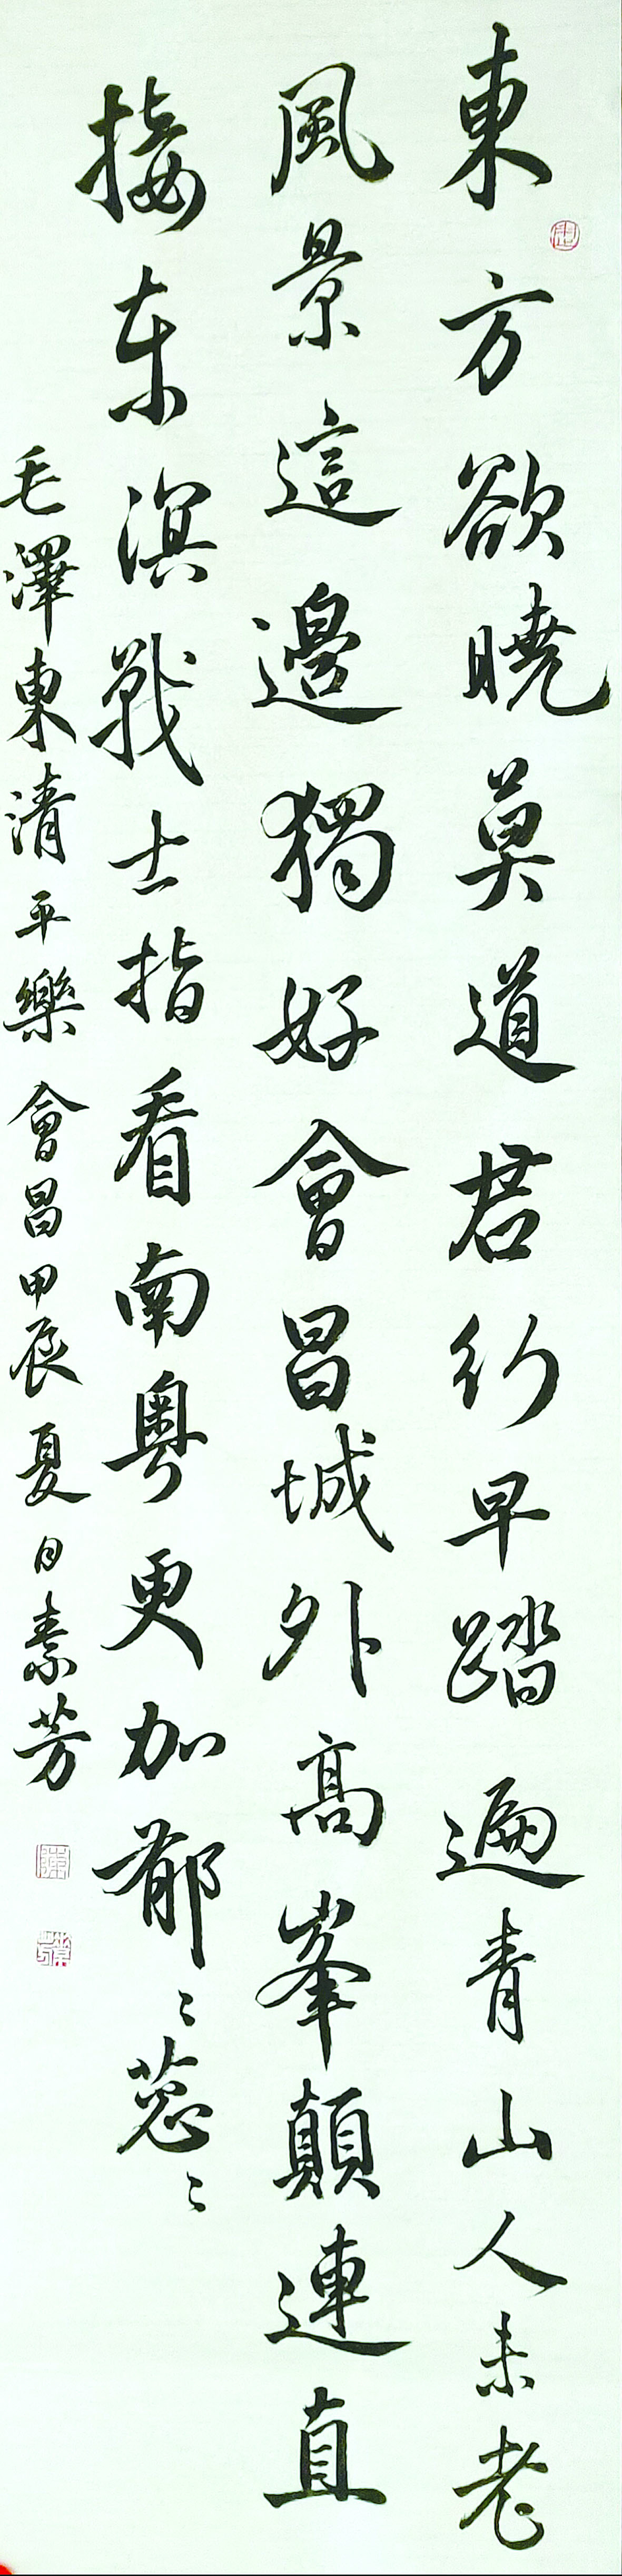 東方欲曉莫道君行早踏遍青山人未老
風景這邊獨好會昌城外高峯顛連直
接东溟戰士指看南粵更加郁〻葱〻
毛澤東清平樂會昌甲辰夏月素芳